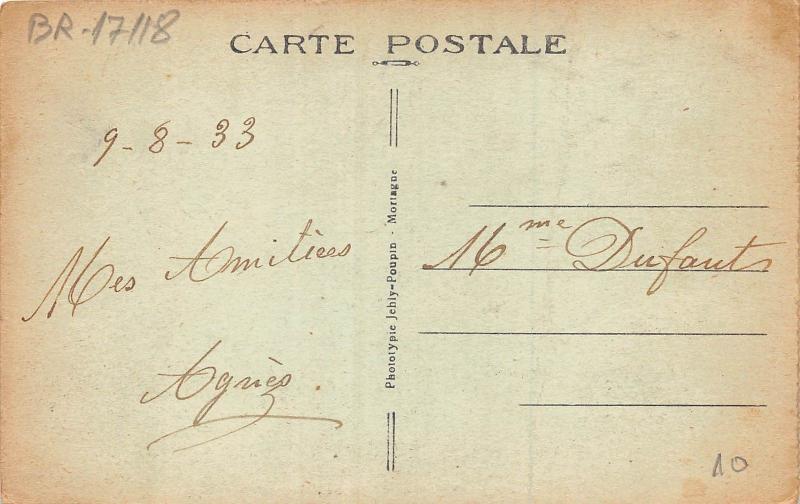 BR-17118
CARTE POSTALE
9-8-33
Mes Amitiées
Agnès.
Phototypie Jehly-Poupin - Mortagne
Mme Dufauts
10